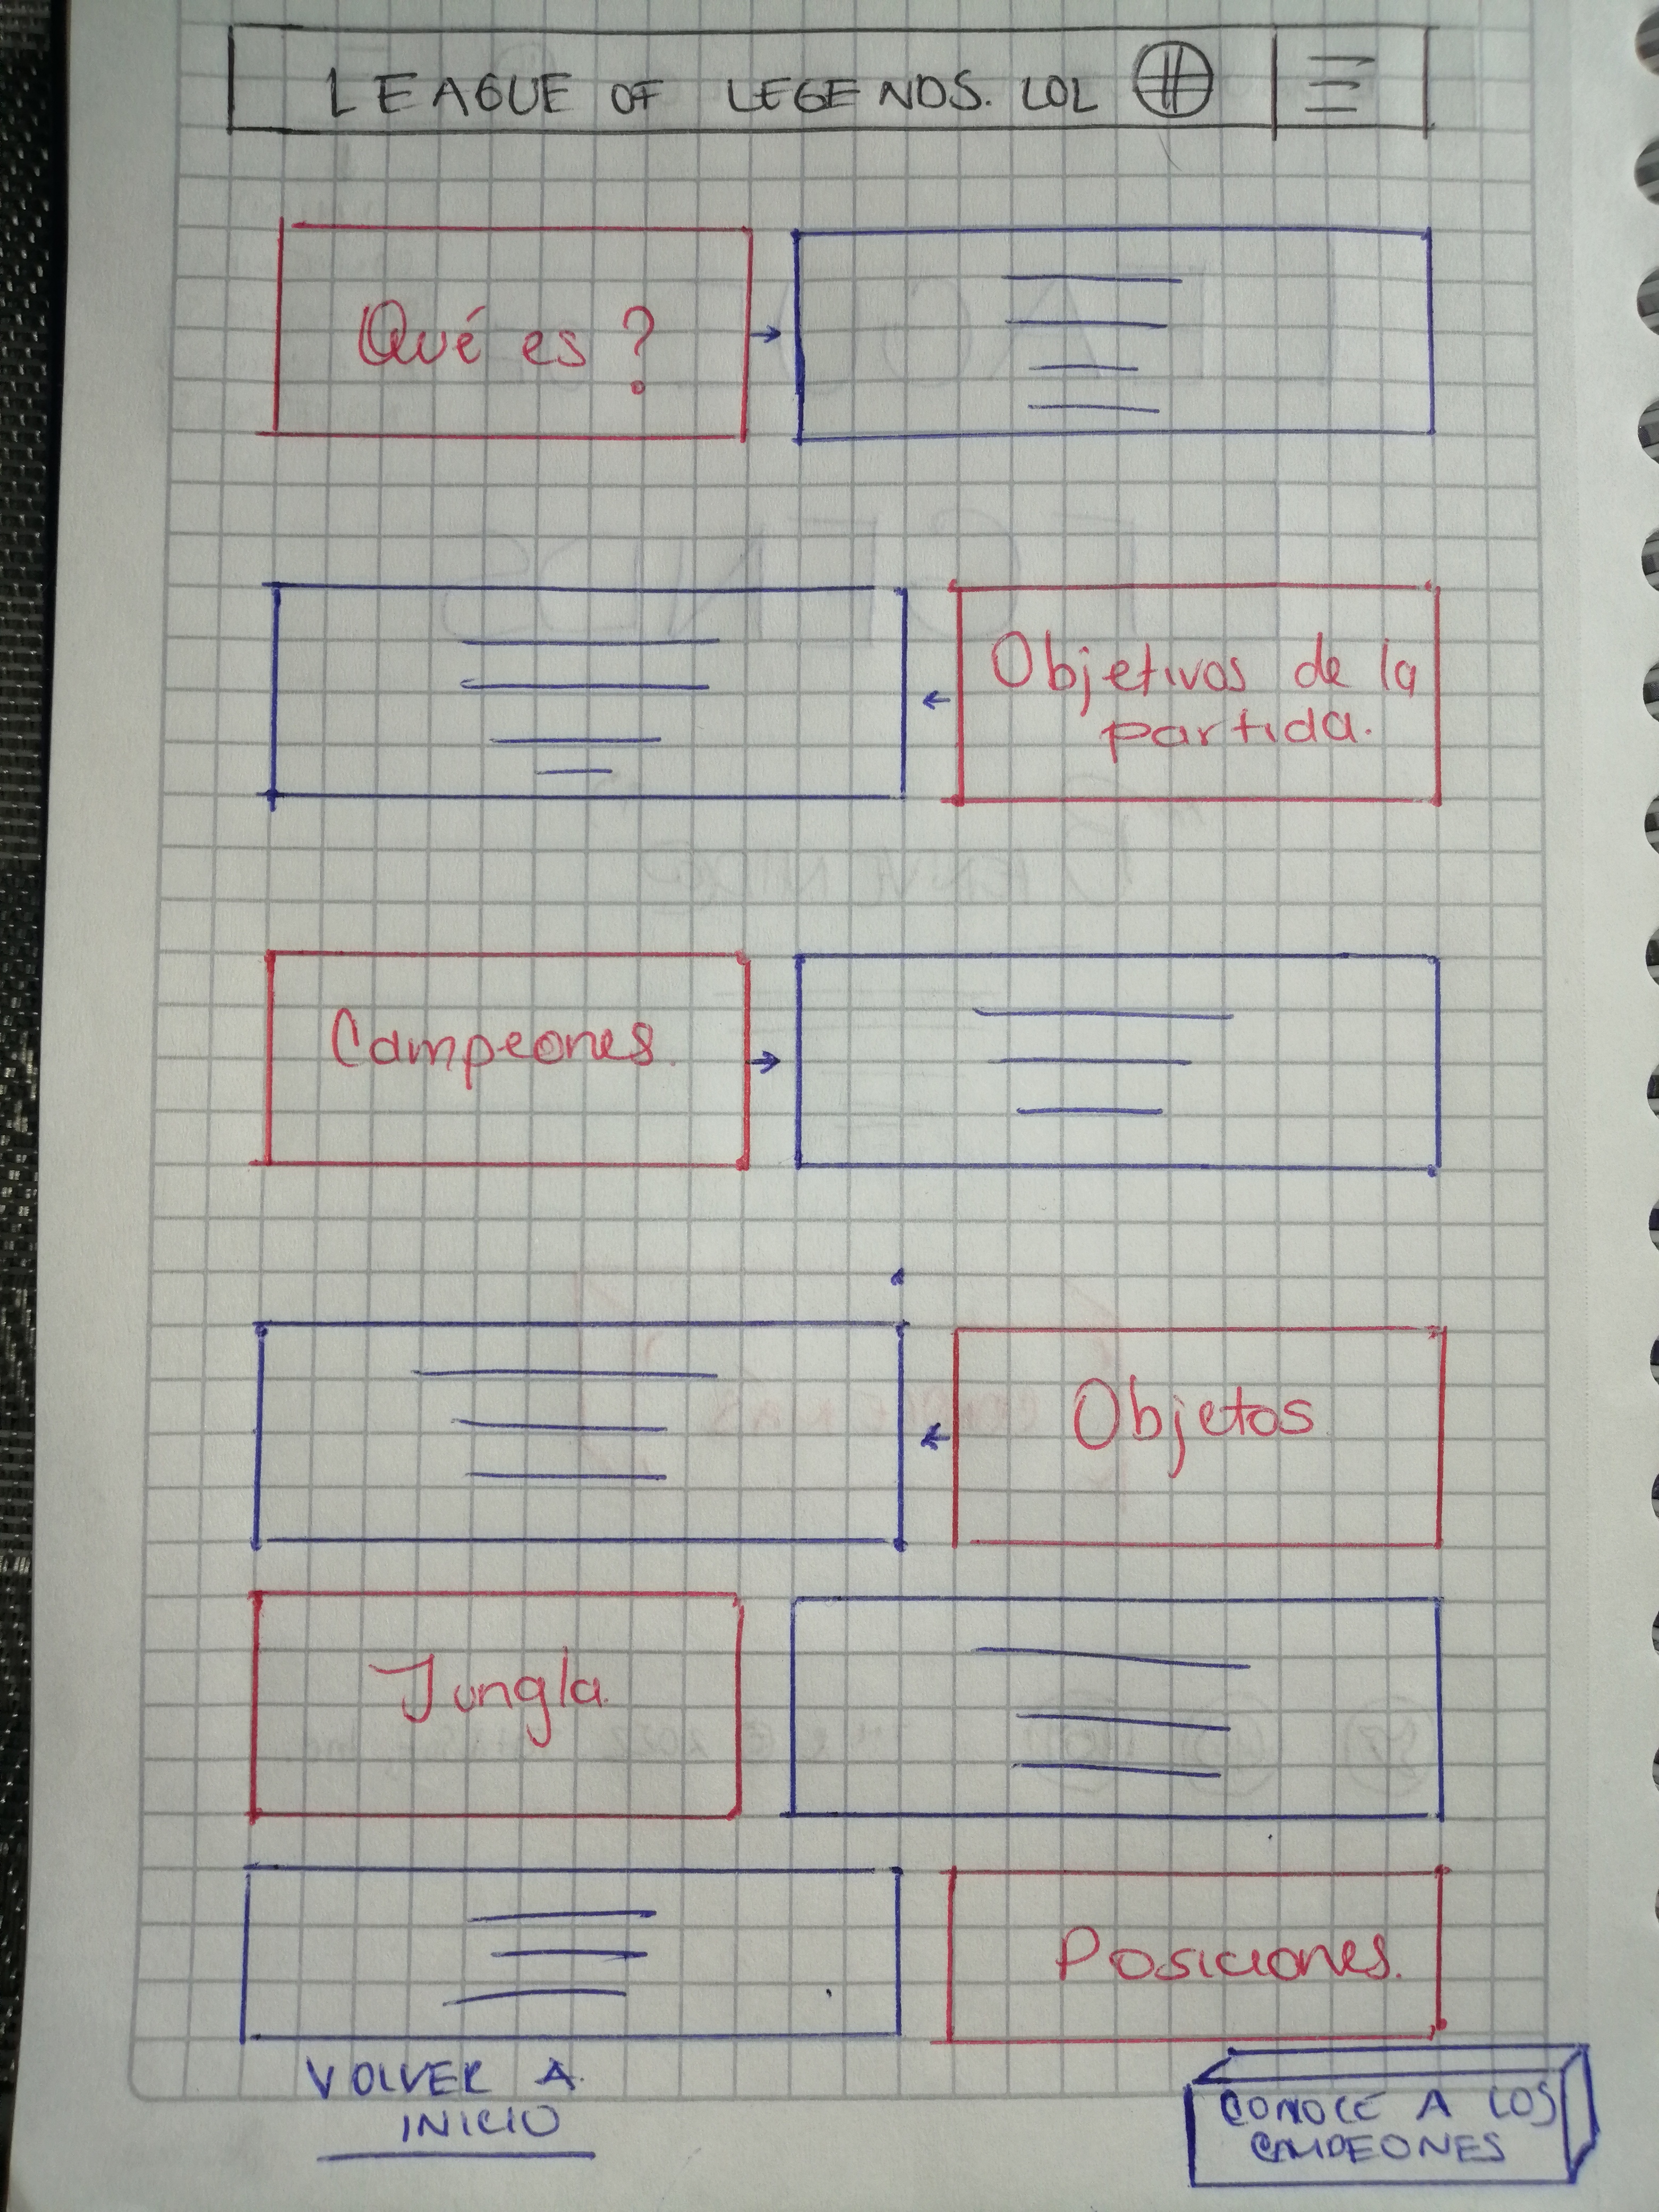 LEAGUE OF LEGENDS. LOL
Qué es ?
Objetivos de la
partida.
Campeones.
Objetos
Jungla.
Posiciones.
VOLVER A
INICIO
CONOCE A LOS
CAMPEONES